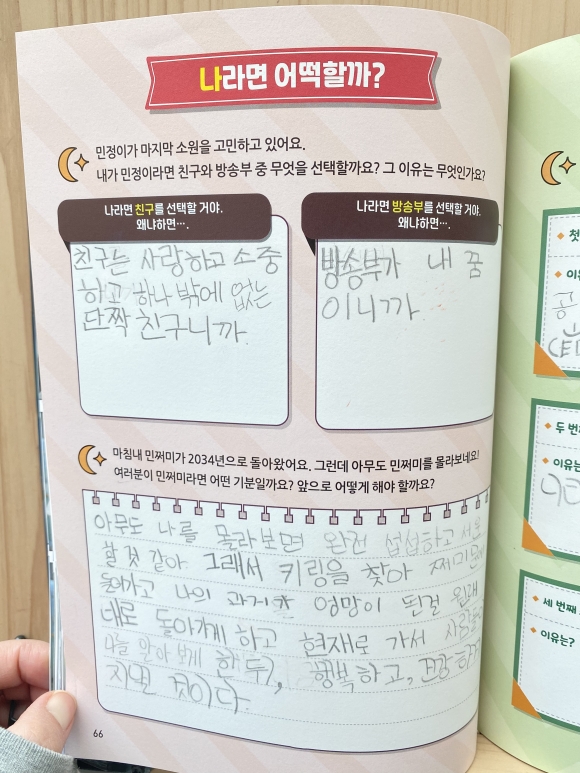 나라면 어떡할까?
민정이가 마지막 소원을 고민하고 있어요.
내가 민정이라면 친구와 방송부 중 무엇을 선택할까요? 그 이유는 무엇인가요?
나라면 친구를 선택할 거야.
왜냐하면….
친구는 사랑하고 소중
하고 하나 밖에 없는
단짝 친구니까.
나라면 방송부를 선택할 거야.
왜냐하면….
방송부가 내 꿈
이니까
마침내 민쩌미가 2034년으로 돌아왔어요. 그런데 아무도 민쩌미를 몰라보네요!
여러분이 민쩌미라면 어떤 기분일까요? 앞으로 어떻게 해야 할까요?
아무도 나를 몰라보면 완전 섭섭하고
할 것 같아 그래서 키링을 찾아
들어가고 나의 과거 엉망이 된걸 원래
대로 돌아가게 하고 현재로 가서
나를 알아보게 한 뒤, 행복하고,
지낼 것이다.
66
첫
이유
두 번째
이유는
세 번째
이유는?